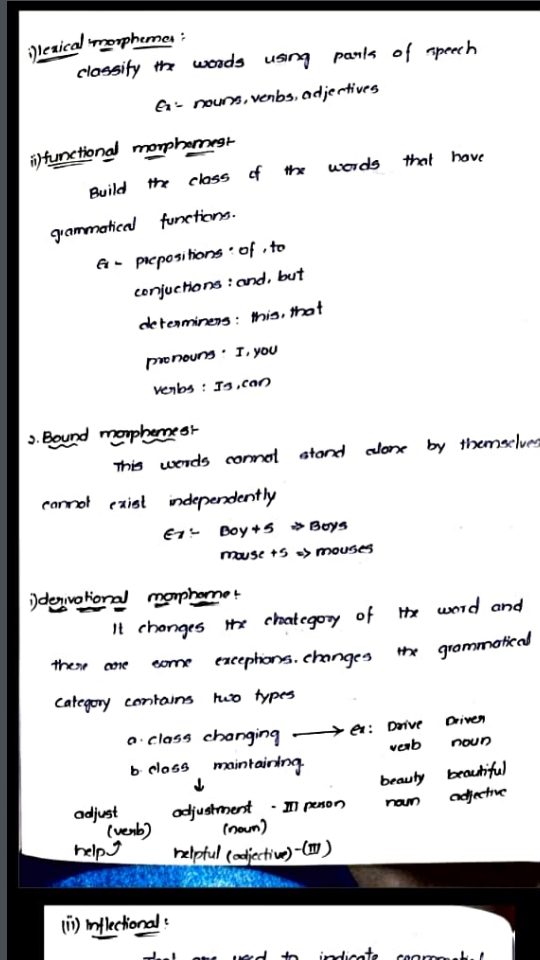 i) lexical morphemes :
classify the words using parts of speech
Ex :- nouns, verbs, adjectives
ii) functional morphemes :-
Build the class of the words that have
grammatical functions.
Ex :- prepositions : of , to
conjuctions : and, but
determiners : this, that
pronouns : I, you
verbs : Is, can
2. Bound morphemes :-
This words cannot stand alone by themselves
cannot exist independently
Ex :- Boy + s => Boys
mouse + s => mouses
i) derivational morpheme :-
It changes the chategory of the word and
there are some exceptions. changes the grammatical
category contains two types
a. class changing → ex : Drive Driver
verb noun
b. class maintaining.
↓ beauty beautiful
noun adjective
adjust adjustment - III person
(verb) (noun)
help helpful (adjective) - (III)
(ii) Inflectional :
that are used to indicate